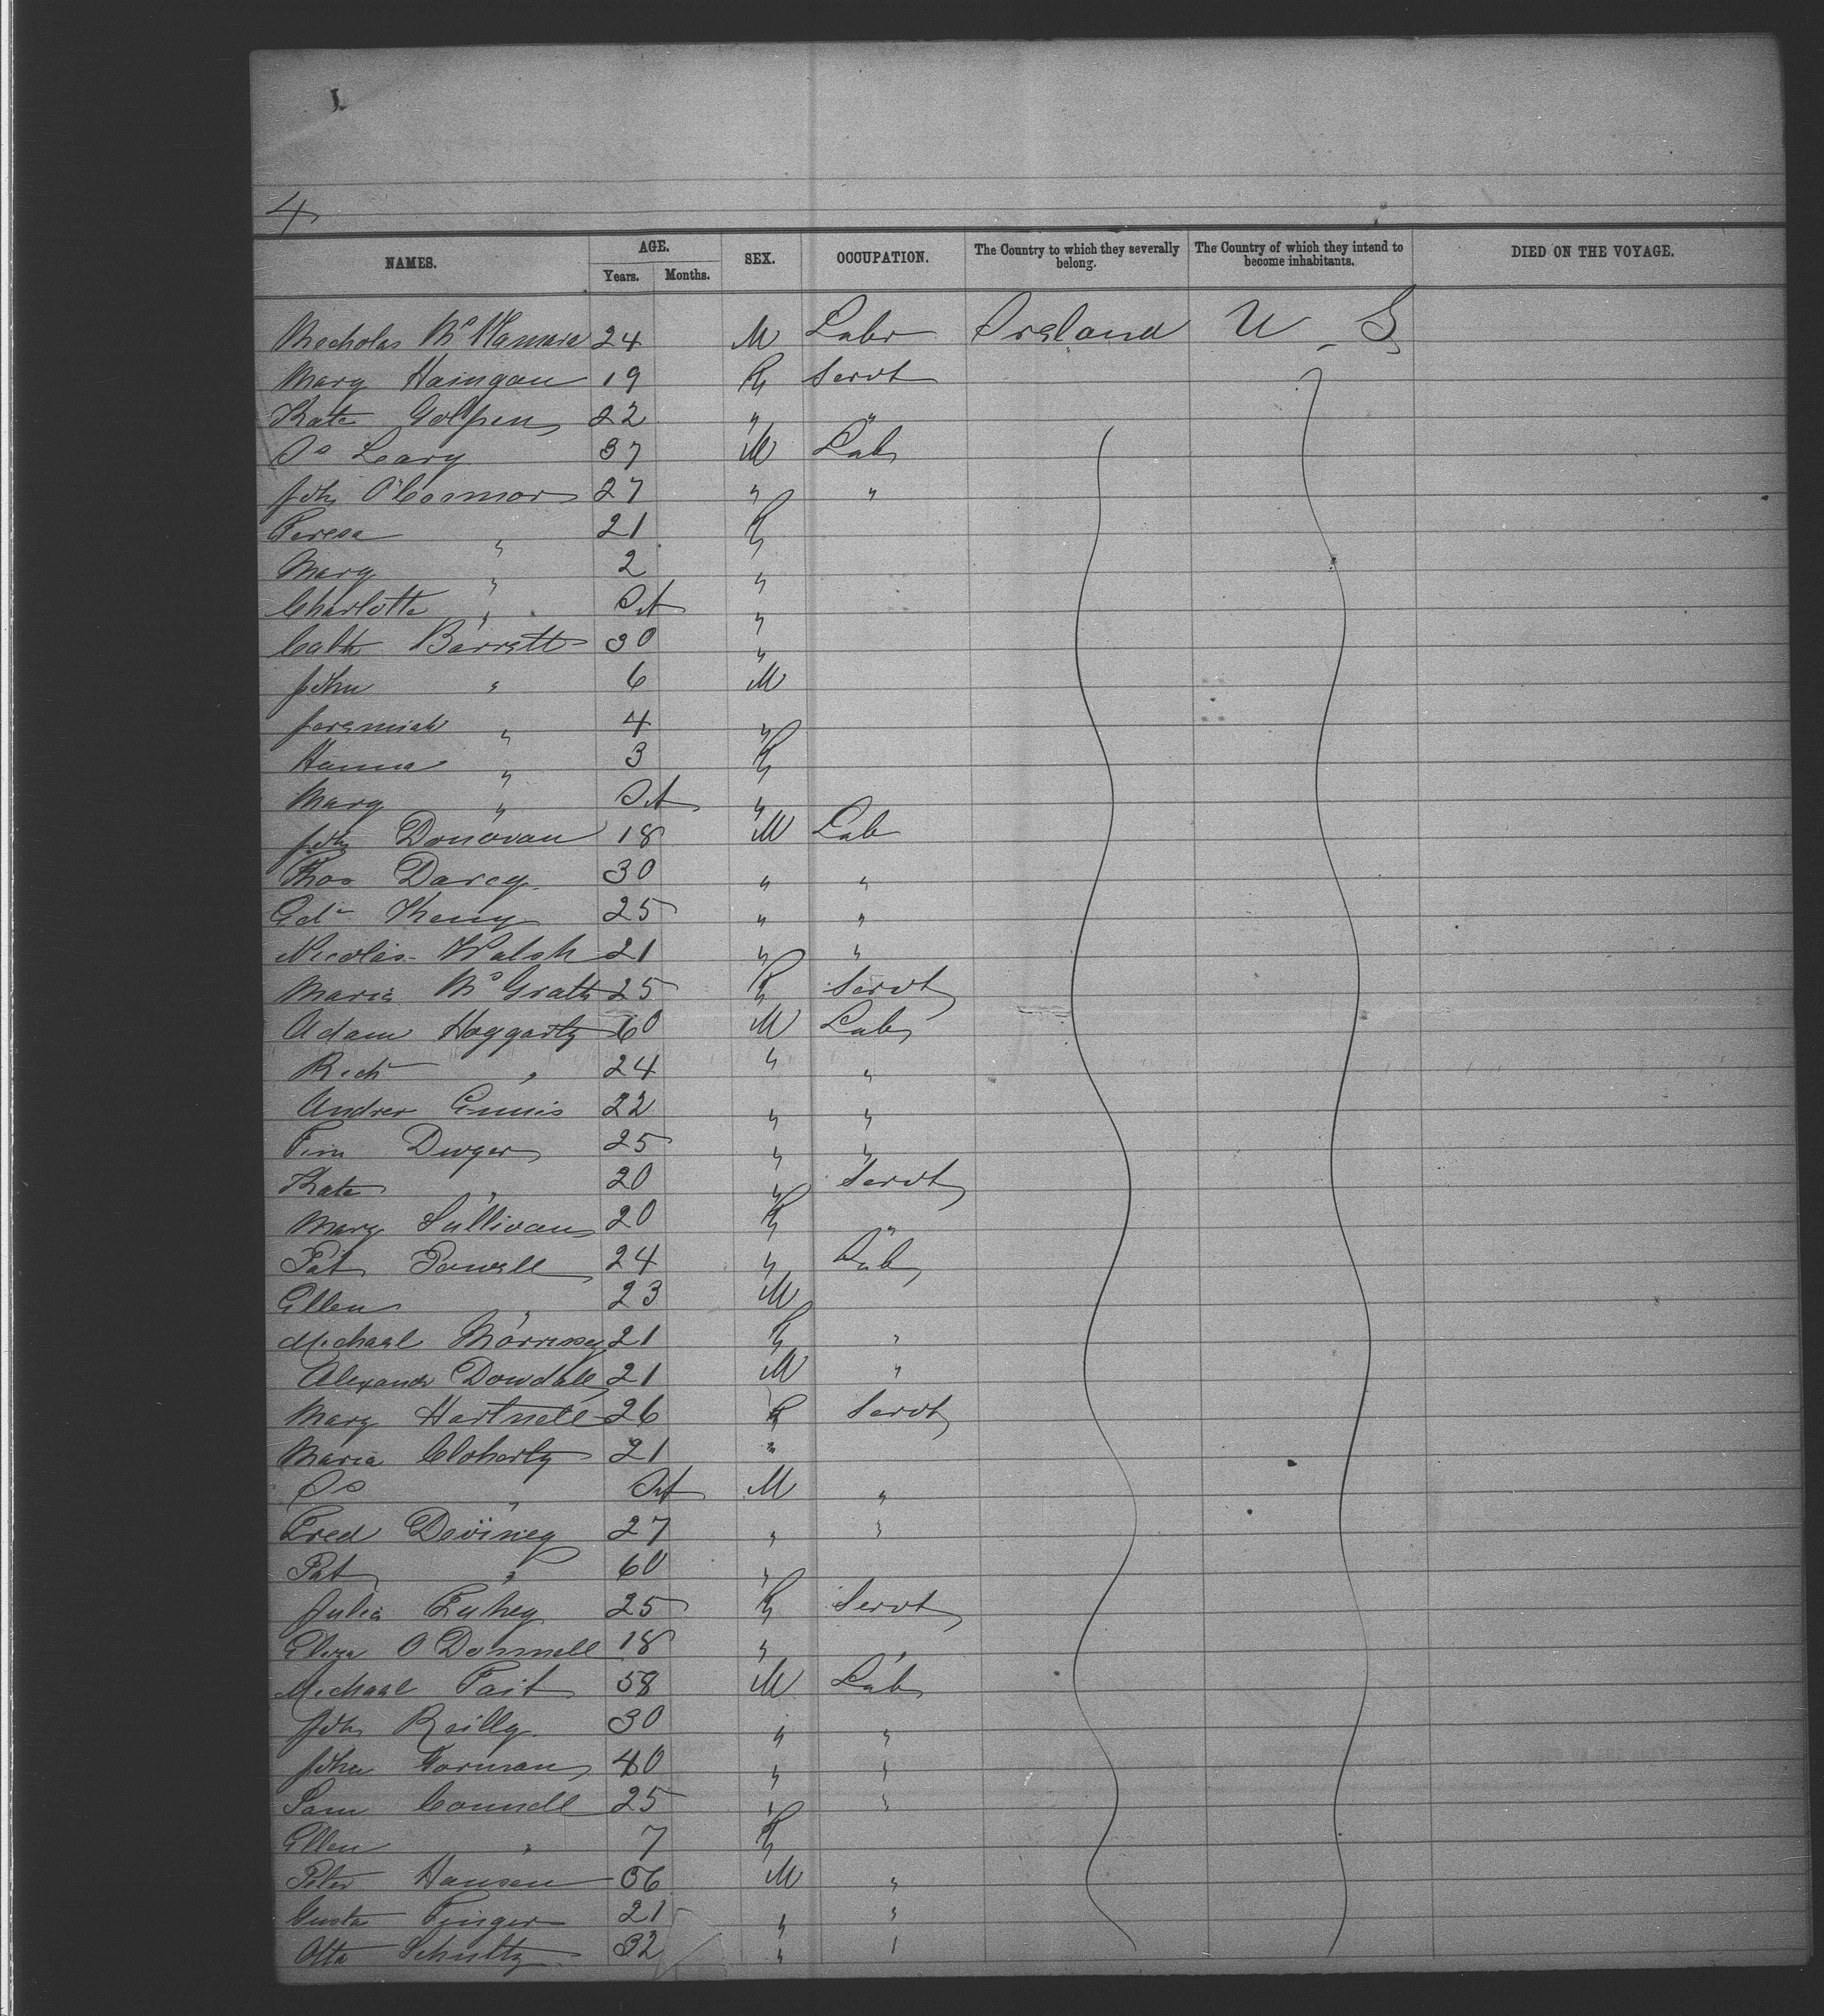 4
NAMES. AGE. Years. Months. SEX. OCCUPATION. The Country to which they severally belong. The Country of which they intend to become inhabitants. DIED ON THE VOYAGE.
Nicholas McNamara 24 M Labr Ireland U. S
Mary 19 F Servt
Kate 22 " "
Leary 37 M Lab
Joh O'Connor 27 " "
Teresa " 21 F
Mary " 2 "
Charlotte " Inf "
Cath Barrett 30 "
John " 6 M
Jeremiah " 4 "
Hanna " 3 F
Mary " Inf "
Joh Donovan 18 M Lab
Thos Darcy 30 " "
Edw Keny 25 " "
Nicolas Walsh 21 " "
Maria McGrath 25 F Servt
Adam Hoggarty 60 M Lab
Richd " 24 " "
Andrew Ennis 22 " "
Tim Dwyer 25 " "
Kate " 20 " Servt
Mary Sullivan 20 F "
Pat Powell 24 " Lab
Ellen " 23 M
Michael Morrissey 21 F "
Alexandr Dowdall 21 M "
Mary Hartnell 26 F Servt
Maria Cloherty 21 "
" Inf M "
Fred Deviney 27 " "
Pat " 60 "
Julia Fahey 25 F Servt
Eliza O Donnell 18 " "
Michael Tait 58 M Lab
Joh Reilly 30 " "
John Gorman 40 " "
Sam Connell 25 " "
Ellen " 7 F
Peter Hansen 56 M "
Gusta Finger 21 " "
Otto Schultz 32 " "